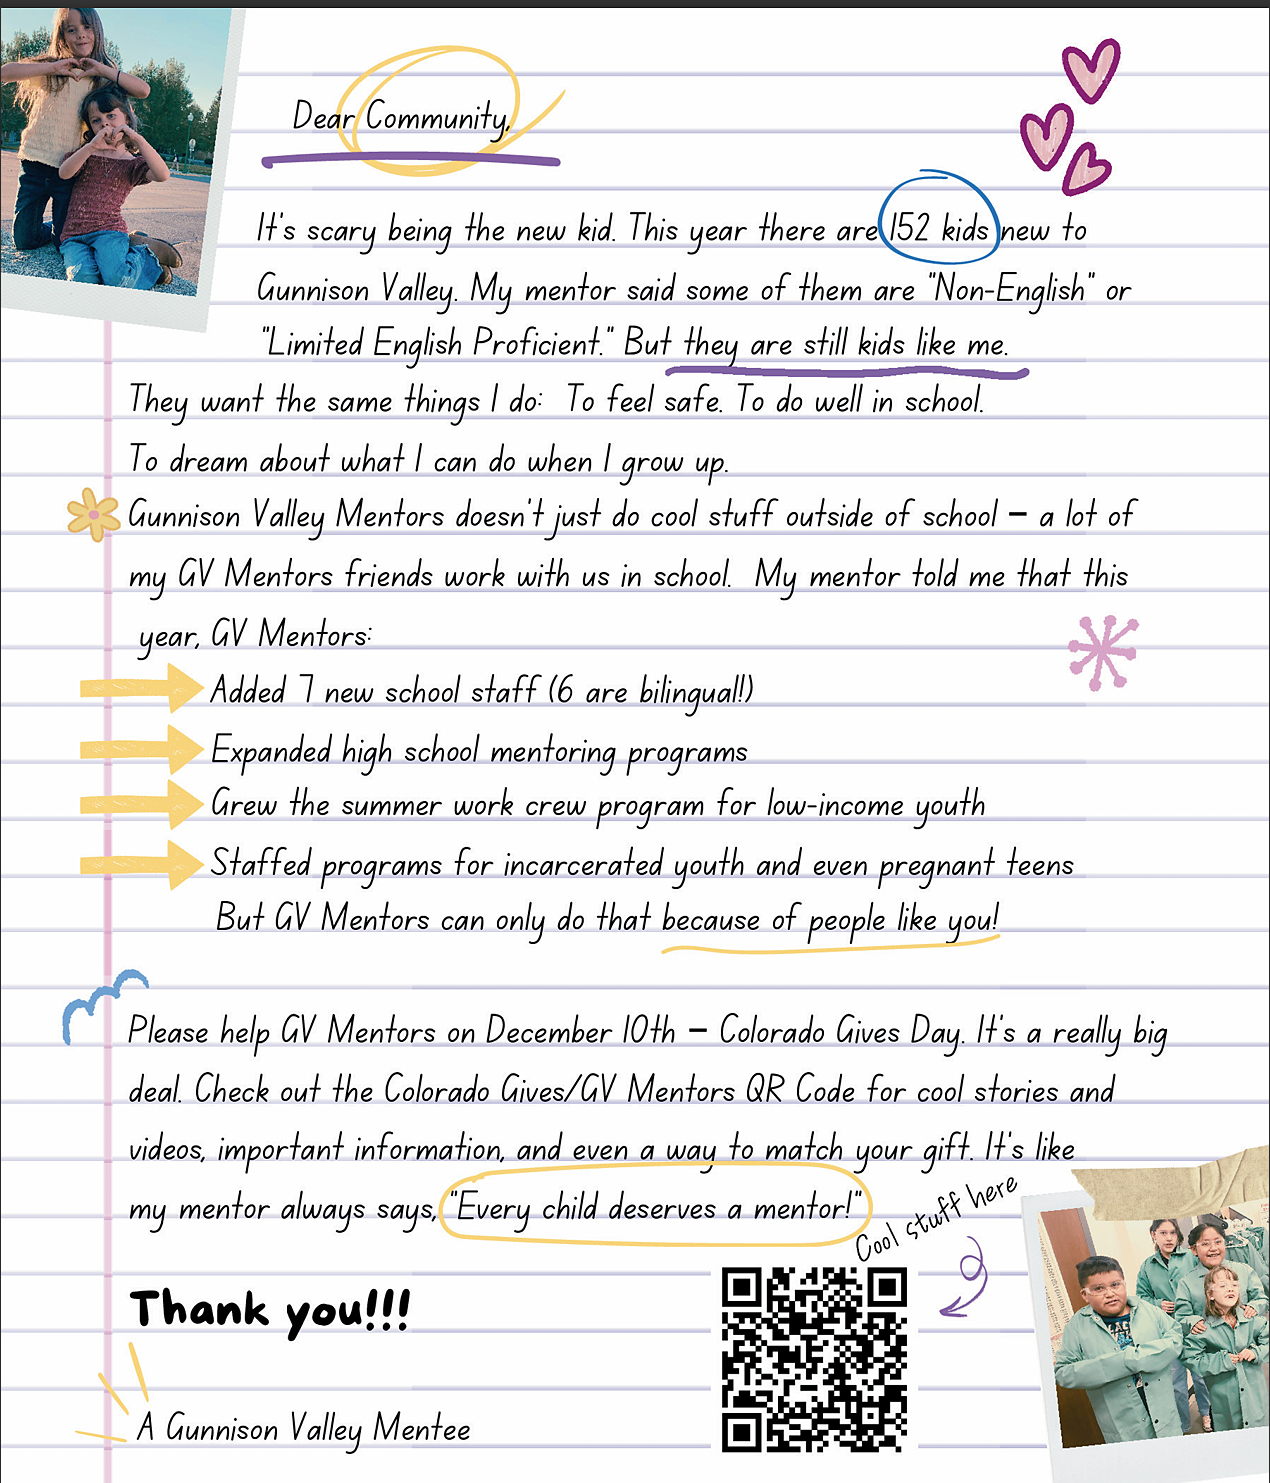 Dear Community,
It's scary being the new kid. This year there are 152 kids new to
Gunnison Valley. My mentor said some of them are "Non-English" or
"Limited English Proficient." But they are still kids like me.
They want the same things I do: To feel safe. To do well in school.
To dream about what I can do when I grow up.
Gunnison Valley Mentors doesn't just do cool stuff outside of school – a lot of
my GV Mentors friends work with us in school. My mentor told me that this
year, GV Mentors:
Added 7 new school staff (6 are bilingual!)
Expanded high school mentoring programs
Grew the summer work crew program for low-income youth
Staffed programs for incarcerated youth and even pregnant teens
But GV Mentors can only do that because of people like you!
Please help GV Mentors on December 10th – Colorado Gives Day. It's a really big
deal. Check out the Colorado Gives/GV Mentors QR Code for cool stories and
videos, important information, and even a way to match your gift. It's like
my mentor always says, "Every child deserves a mentor!"
Cool stuff here
Thank you!!!
A Gunnison Valley Mentee